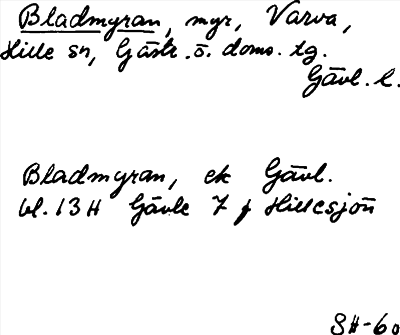 Bladmyran, myr, Varva,
Hille sn, Gästr. ö. doms. tg.
Gävl. l.
Bladmyran, ek Gävl.
bl. 13 H Gävle 7 f Hillesjön
SH-60